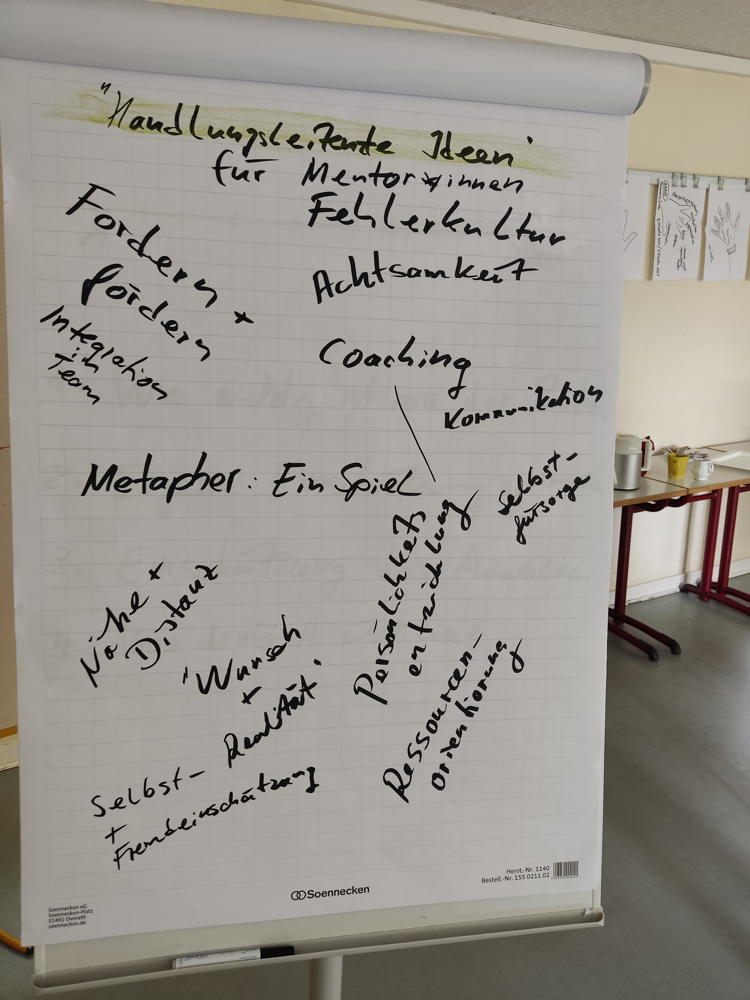 "Handlungsleitende Ideen"
für Mentor*innen
Fordern +
fördern
Fehlerkultur
Achtsamkeit
Integration
in
Team
Coaching
Kommunikation
Metapher: Ein Spiel
Selbst-
fürsorge
Persönlichkeits
entwicklung
Nähe +
Distanz
"Wunsch
+
Realität"
Ressourcen-
orientierung
Selbst-
+
Fremdeinschätzung
Soennecken
Herst.-Nr. 1140
Bestell.-Nr. 155 0211 02
Soennecken eG
Soennecken-Platz
51491 Overath
soennecken.de